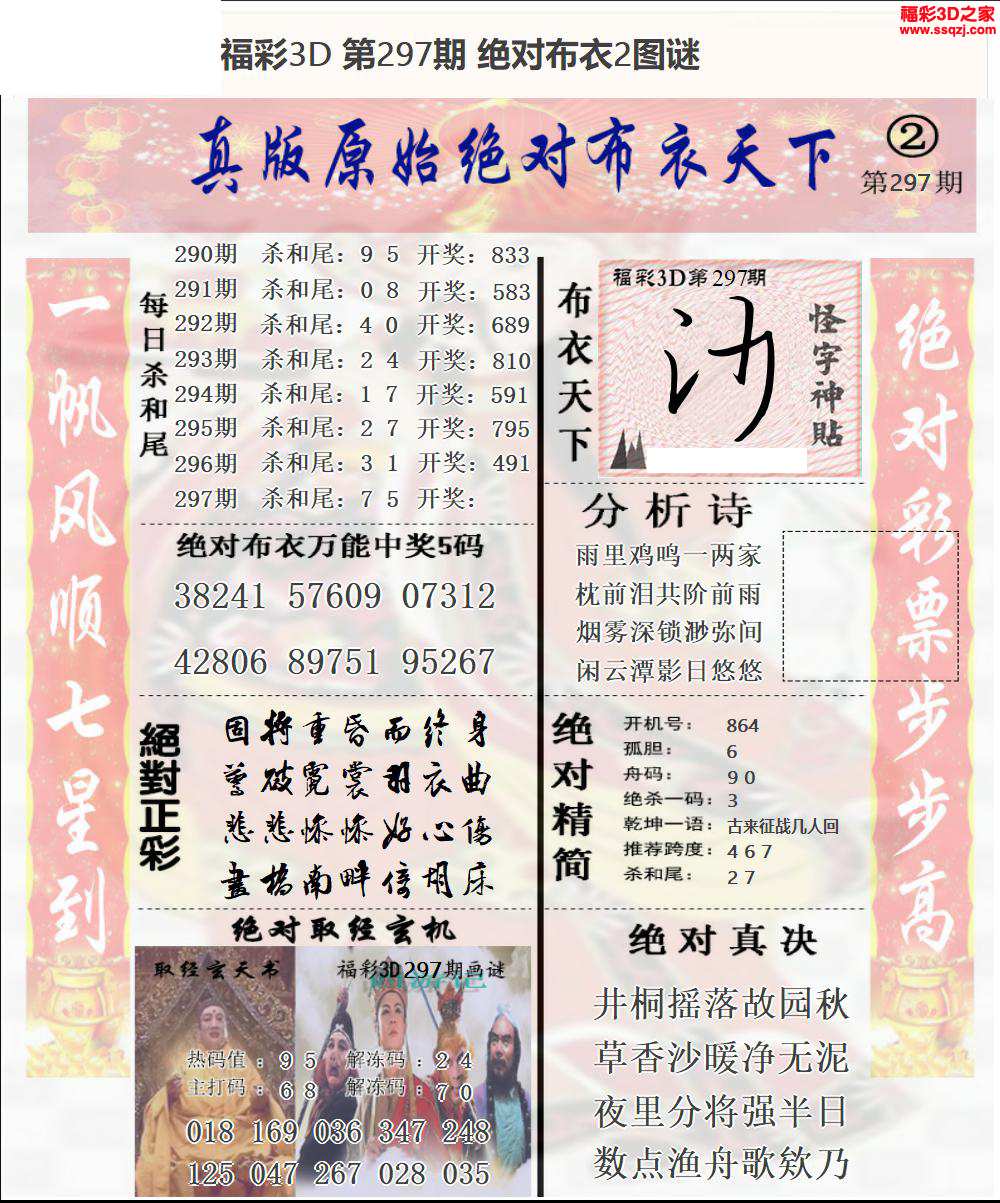 福彩3D之家
www.ssqzj.com
福彩3D 第297期 绝对布衣2图谜
真版原始绝对布衣天下
②
第297期
一帆风顺七星到
每日杀和尾
290期 杀和尾：9 5 开奖：833
291期 杀和尾：0 8 开奖：583
292期 杀和尾：4 0 开奖：689
293期 杀和尾：2 4 开奖：810
294期 杀和尾：1 7 开奖：591
295期 杀和尾：2 7 开奖：795
296期 杀和尾：3 1 开奖：491
297期 杀和尾：7 5 开奖：
绝对布衣万能中奖5码
38241 57609 07312
42806 89751 95267
絕對正彩
固将重昏而终身
曾破霓裳羽衣曲
悲悲惨惨好心伤
画桥南畔倚胡床
绝对取经玄机
取经玄天书
福彩3D297期画谜
热码值：9 5 解冻码：2 4
主打码：6 8 解冻码：7 0
018 169 036 347 248
125 047 267 028 035
布衣天下
福彩3D第297期
怪字神贴
分析诗
雨里鸡鸣一两家
枕前泪共阶前雨
烟雾深锁渺弥间
闲云潭影日悠悠
绝对精简
开机号：864
孤胆：6
舟码：9 0
绝杀一码：3
乾坤一语：古来征战几人回
推荐跨度：4 6 7
杀和尾：2 7
绝对真决
井桐摇落故园秋
草香沙暖净无泥
夜里分将强半日
数点渔舟歌欸乃
绝对彩票步步高